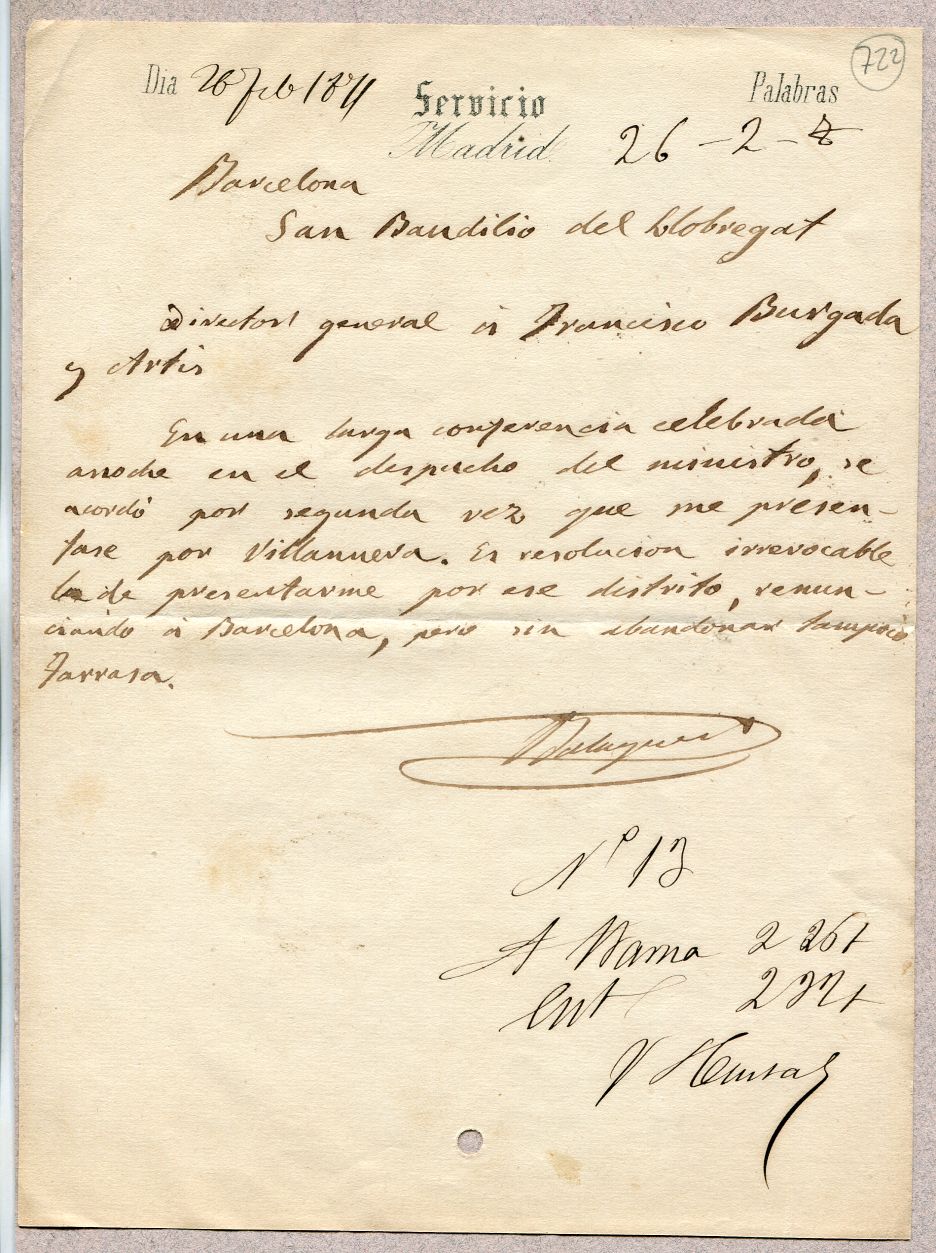 722
Dia 26 feb 1871 Servicio Palabras
Madrid. 26 - 2 -
Barcelona
San Baudilio del Llobregat
Director general á Francisco Burgada
y Artis
En una larga conferencia celebrada
anoche en el despacho del ministro, se
acordó por segunda vez que me presen-
tase por Villanueva. Es resolucion irrevocable
la de presentarme por ese distrito, renun-
ciando á Barcelona, pero sin abandonar tampoco
Tarrasa.
Balaguer
Nº 13
A Barna 2 26 t
2 32 t